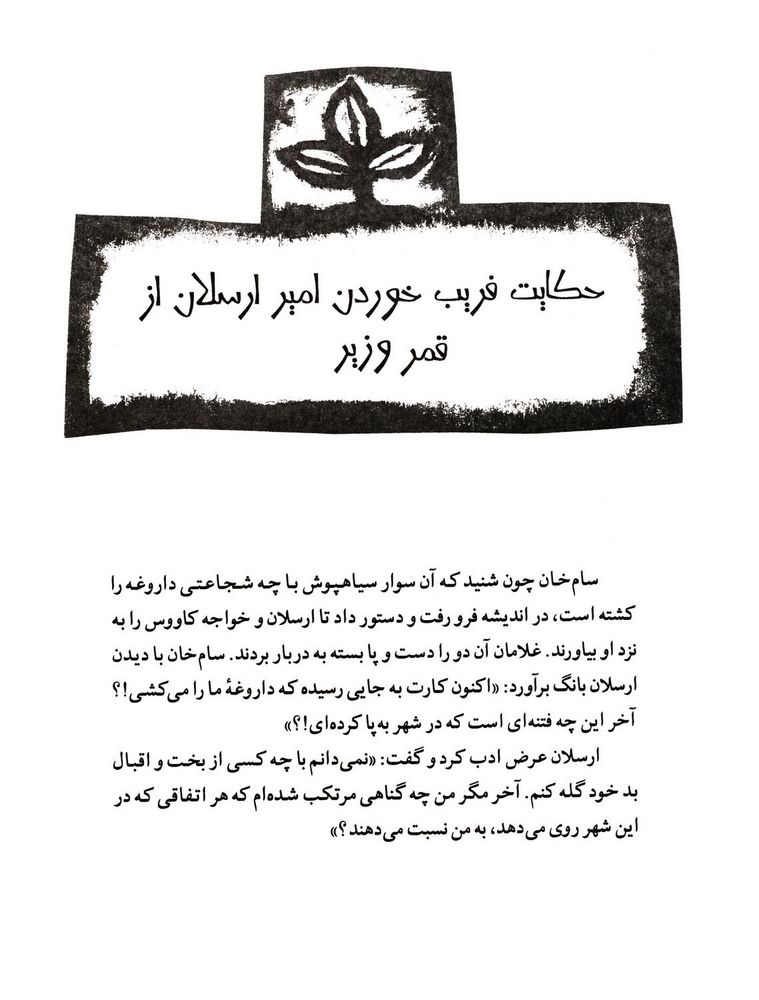 حکایت فریب خوردن امیر ارسلان از
قمر وزیر
سام‌خان چون شنید که آن سوار سیاهپوش با چه شجاعتی داروغه را
کشته است، در اندیشه فرو رفت و دستور داد تا ارسلان و خواجه کاووس را به
نزد او بیاورند. غلامان آن دو را دست و پا بسته به دربار بردند. سام‌خان با دیدن
ارسلان بانگ برآورد: «اکنون کارت به جایی رسیده که داروغهٔ ما را می‌کشی!؟
آخر این چه فتنه‌ای است که در شهر به‌پا کرده‌ای!؟»
ارسلان عرض ادب کرد و گفت: «نمی‌دانم با چه کسی از بخت و اقبال
بد خود گله کنم. آخر مگر من چه گناهی مرتکب شده‌ام که هر اتفاقی که در
این شهر روی می‌دهد، به من نسبت می‌دهند؟»